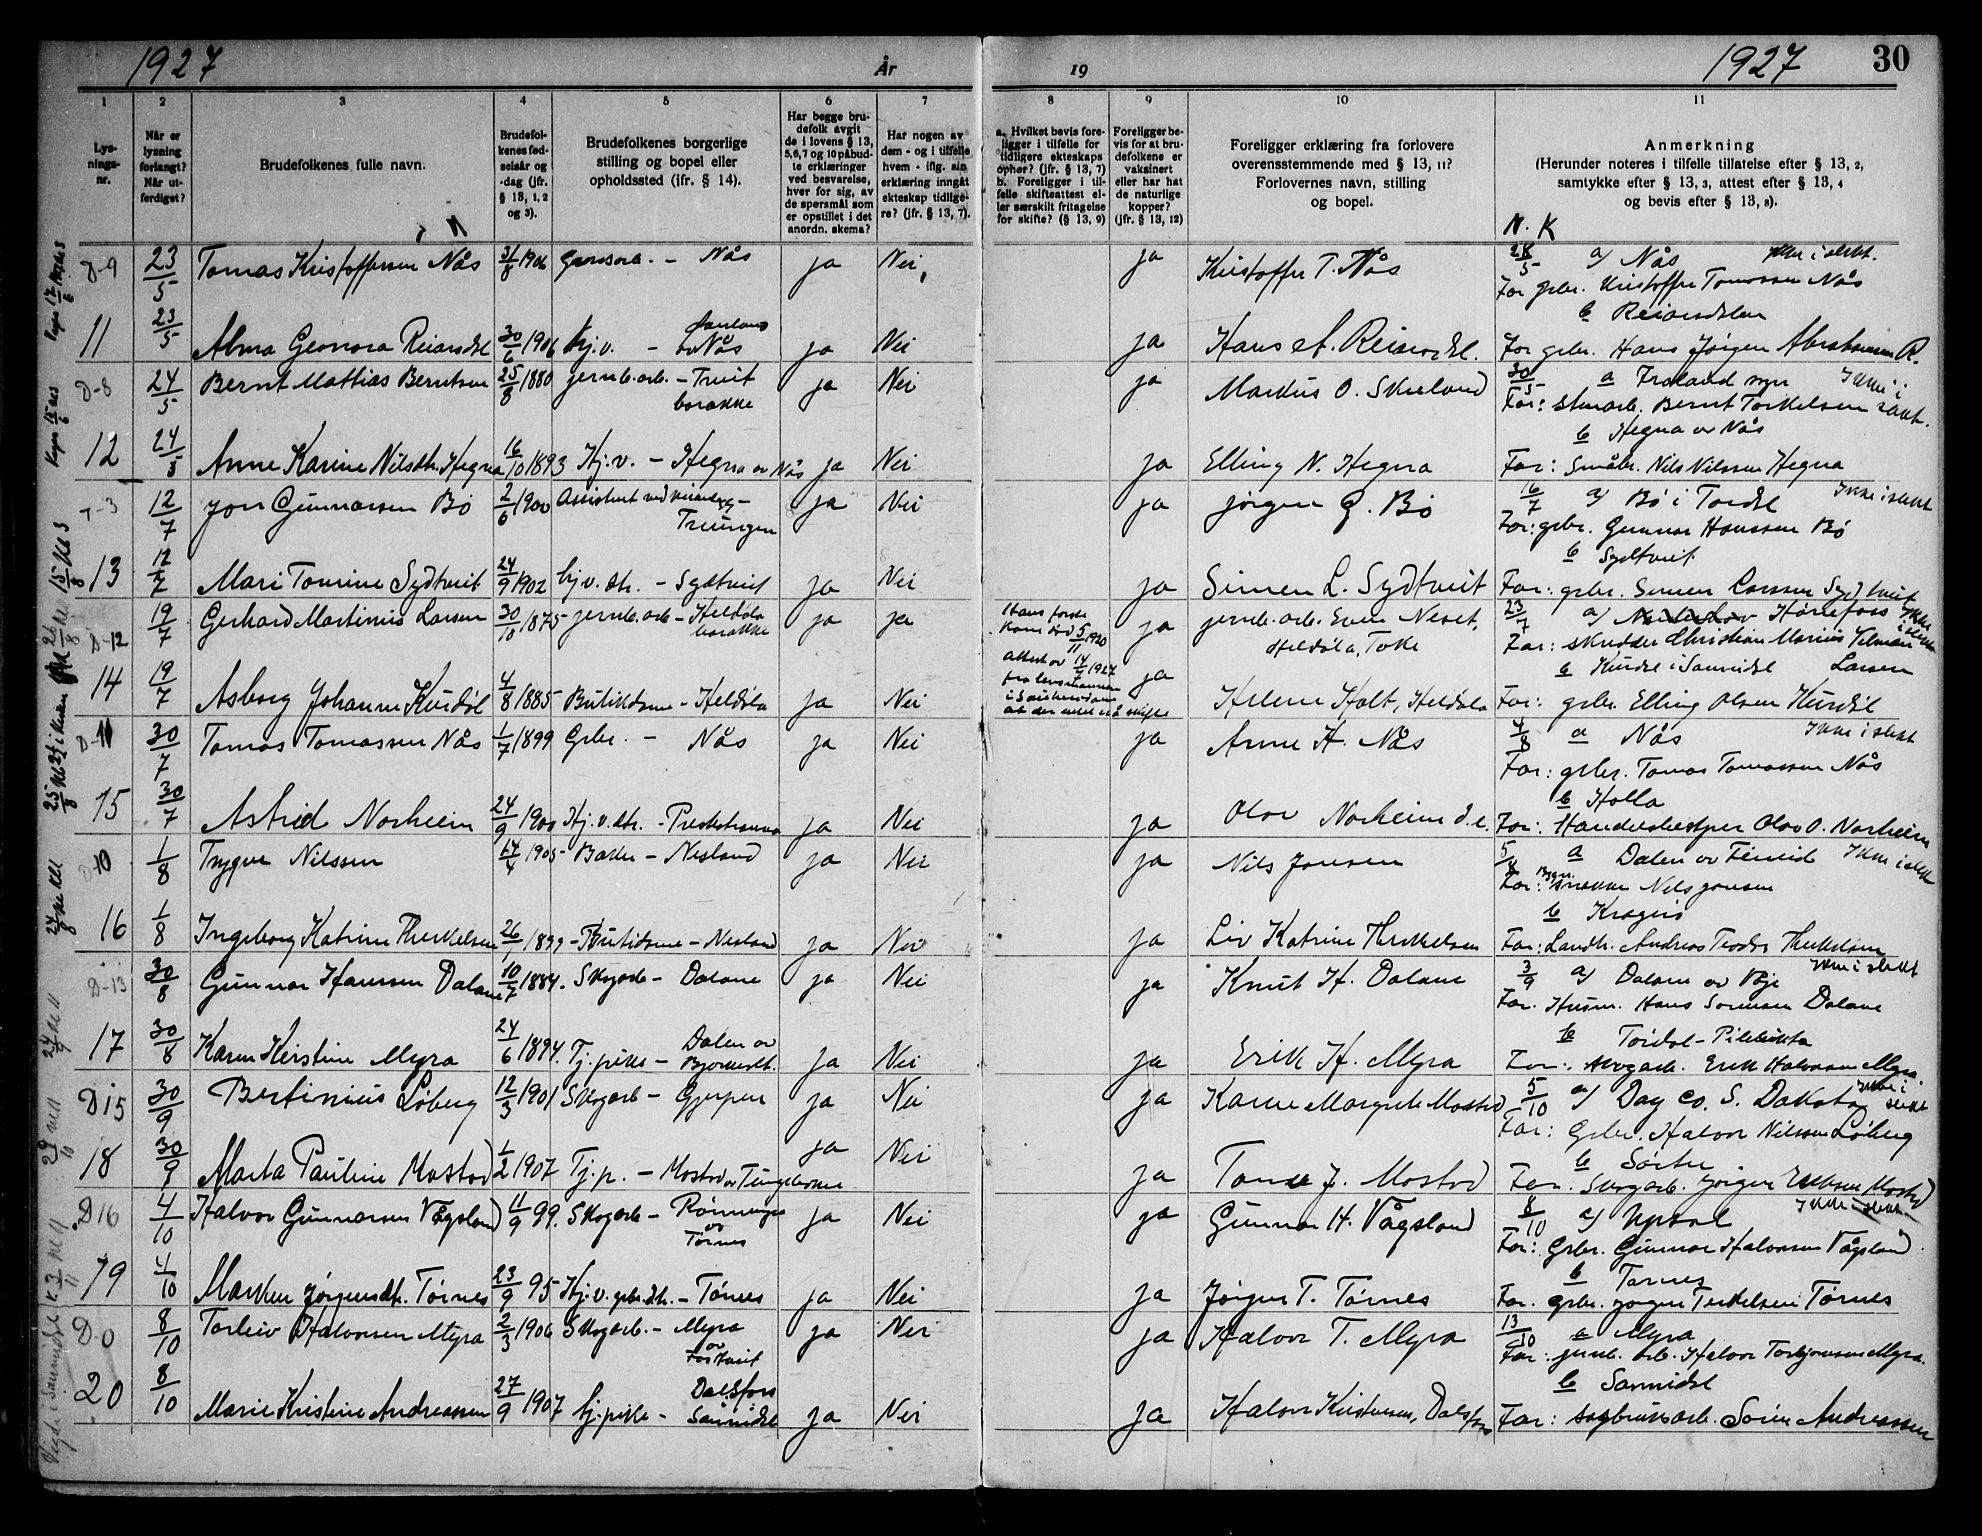 1927
År
19
1927
30
1
2
3
4
5
6
7
8
9
10
11
Lys-
nings-
nr.
Når er
lysning
forlangt?
Når ut-
ferdiget?
Brudefolkenes fulle navn.
Brudefol-
kenes fød-
selsår og
-dag (jfr.
§ 13, 1, 2
og 3).
Brudefolkenes borgerlige
stilling og bopel eller
opholdssted (ifr. § 14).
Har begge bru-
defolk avgit
de i lovens § 13,
5,6,7 og 10 påbud-
te erklæringer
ved besvarelse,
hver for sig, av
de spørsmål som
er opstillet i det
anordn. skema?
Har nogen av
dem - og i tilfelle
hvem - iflg. sin
erklæring inngått
ekteskap tidlige-
re? (jfr. § 13, 7).
a. Hvilket bevis fore-
ligger i tilfelle for
tidligere ekteskaps
ophør? (jfr. § 13, 7)
b. Foreligger i til-
felle skifteattest el-
ler særskilt fritagelse
for skifte? (§ 13, 9)
Foreligger be-
vis for at bru-
defolkene er
vaksinert
eller har hat
de naturlige
kopper?
(jfr. § 13, 12)
Foreligger erklæring fra forlovere
overensstemmende med § 13, 11?
Forlovernes navn, stilling
og bopel.
Anmerkning
(Herunder noteres i tilfelle tillatelse efter § 13, 2,
samtykke efter § 13, 3, attest efter § 13, 4
og bevis efter § 13, 8).
N. K
D-9 23/5 Tomas Kristoffersen Nås 31/8 1906 - Nås ja Nei ja Kristoffer T. Nås 28/5 a) Nås Ikke i slekt.
For grbr. Kristoffer Tomassen Nås
b Reiarsdalen
11 23/5 Alma Geonora Reiarsdal 30/6 1906 hj.v. - Nås ja Nei ja Hans A. Reiarsdal. For gbr. Hans Jørgen Abrahamsen R.
D-8 24/5 Bernt Mattias Berntsen 25/8 1880 jernb.arb. - Treit ja Nei ja Markus O. Skuland 30/5 a Froland Ikke i
barakke For: Bernt Torkelsen slekt.
b Hegna av Nås
12 24/5 Anne Karine Nilsdtr. Hegna 16/10 1893 Hj.v. - Hegna av Nås ja Nei ja Elling N. Hegna For: Småbr. Nils Nilssen Hegna
T-3 12/7 Jon Gunnarsen Bø 2/6 1900 Assistent ved - ja Nei ja Jørgen G. Bø 16/7 a) Bø i Tordal Ikke i slekt
Treungen For: grbr. Gunnar Hanssen Bø
b Sydtveit
13 12/7 Mari Tomine Sydtveit 24/9 1902 hj.v. dtr. - Sydtveit ja Nei ja Simen L. Sydtveit For: grbr. Simen Larssen Sydtveit
D-12 19/7 Gerhard Martinius Larsen 30/10 1875 - jernb. arb - Heldøla ja ja Hans første ja jernb. arb. Even Neset, 23/7 a) Hønefoss Ikke
barakke Kone død 5/11 1920 Heldøla, Toke For: skredder Christian Marius i slekt
Attest av 14/7 1927 b Kurdøl i Sannidal Larsen
14 19/7 Asborg Johanne Kurdøl 4/8 1885 - Heldøla ja Nei fra lensmannen ja Helene Holt, Heldøla For: grbr. Elling Olsen Kurdøl
D-11 30/7 Tomas Tomassen Nås 1/7 1899 Grbr. - Nås ja Nei ja Anne H. Nås 4/8 a Nås Ikke i slekt
For: grbr. Tomas Tomassen Nås
b Holla
15 30/7 Astrid Norheim 24/9 1900 Hj.v. dtr. - ja Nei ja Olav Norheim d.e. For: Handelsbestyrer Olav O. Norheim
D-10 1/8 Trygve Nilssen 14/4 1905 - Baker - Nesland ja Nei ja Nils Jonsen 5/8 a Dalen av Ikke i slekt
For: Bygn. snekker Nils Jonsen
b Kragerø
16 1/8 Ingeborg Katrine Therkelsen 26/1 1899 - - Nesland ja Nei ja Liv Katrine Therkelsen For: Landh. Andreas Teodor Therkelsen
D-13 30/8 Gunnar Hanssen Dalane 10/7 1884. Skogarb - Dalane ja Nei ja Knut H. Dalane 3/9 a) Dalane av Vøje Ikke i slekt
For. Husm. Hans Dalane
b Tordal - Pilebukta
17 30/8 Karen Kirstine Myra 24/6 1894. Tj. pike - Dalen av ja Nei ja Erik H. Myra For: Skogarb. Erik Halvorsen Myra.
D15 30/9 Bertinius Løberg 12/3 1901 Skogarb - Gjerpen ja Nei ja Karen Margrete Mostad 5/10 a) Day Co. S. Dakota Ikke i slekt
For: Grbr. Halvor Nilssen Løberg
b Sörte
18 30/9 Marta Pauline Mostad 1/2 1907 Tj.p. - Mostad ja Nei ja Tone J. Mostad For. Skogarb. Jørgen Mostad
D16 4/10 Halvor Gunnarsen Vågsland 11/9 99. Skogarb - Rønningen ja Nei ja Gunnar H. Vågsland 8/10 a) Updal Ikke i slekt.
av Tørnes For: Grbr. Gunnar Halvorsen Vågsland.
b Tørnes
19 4/10 Marken Jørgensdtr. Tørnes 23/9 95 Hj.v. grbr.dtr. - Tørnes ja Nei ja Jørgen T. Tørnes For. grbr. Jørgen Terkelsen Tørnes
D-0 8/10 Torleiv Halvorsen Myra 2/3 1906 Skogarb. - Myra ja Nei ja Halvor T. Myra 13/10 a Myra
av For. jernb. arb. Halvor Torbjørnsen Myra.
b Sannidal
20 8/10 Marie Kristine Andreassen 27/9 1907 tj. pike - Dalsfoss ja Nei ja Halvor Kristensen, Dalsfos For: sagbruksarb. Søren Andreassen
Sannidal